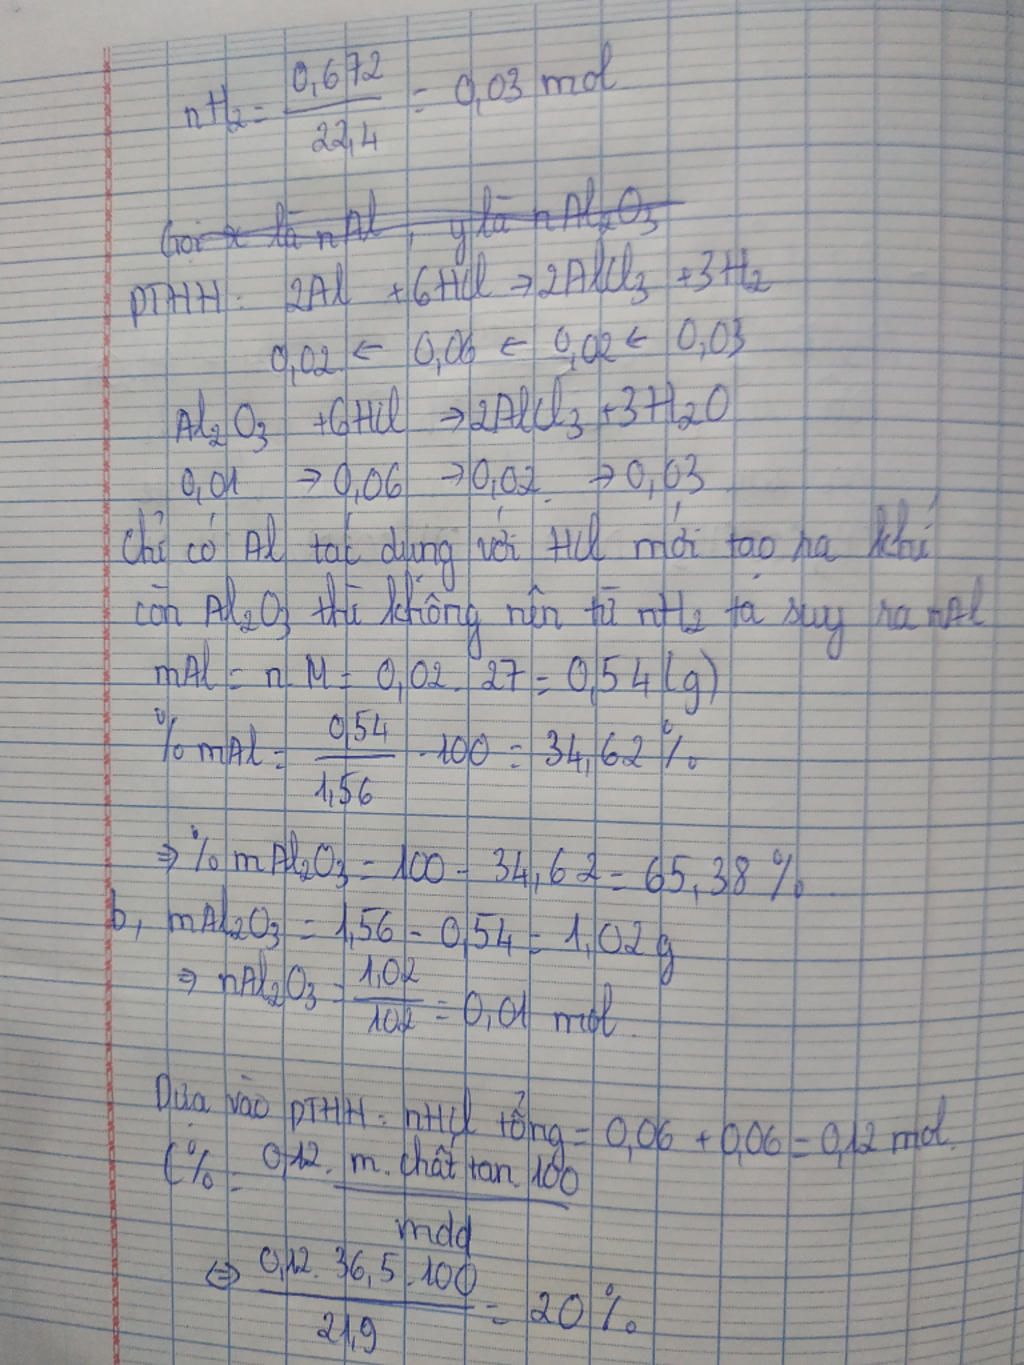 nH₂ = 0,672 / 22,4 = 0,03 mol
Gọi x là nAl, y là nAl₂O₃
PTHH: 2Al + 6HCl → 2AlCl₃ + 3H₂
0,02 ← 0,06 ← 0,02 ← 0,03
Al₂O₃ + 6HCl → 2AlCl₃ + 3H₂O
0,01 → 0,06 → 0,02 → 0,03
Chỉ có Al tác dụng với HCl mới tạo ra khí
còn Al₂O₃ thì không nên từ nH₂ ta suy ra nAl
mAl = n.M = 0,02 . 27 = 0,54 (g)
% mAl = 0,54 / 1,56 . 100 = 34,62 %
⇒ % mAl₂O₃ = 100 - 34,62 = 65,38 %
b, mAl₂O₃ = 1,56 - 0,54 = 1,02 g
⇒ nAl₂O₃ = 1,02 / 102 = 0,01 mol
Dựa vào PTHH: nHCl tổng = 0,06 + 0,06 = 0,12 mol.
C% = 0,12. m. chất tan. 100 / mdd
⇔ 0,12. 36,5 . 100 / 21,9 = 20 %